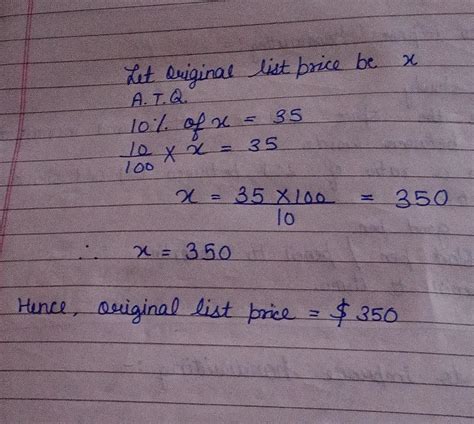 Let original list price be x
A.T.Q.
10% of x = 35
10/100 × x = 35
x = 35 × 100/10 = 350
∴ x = 350
Hence, original list price = $ 350